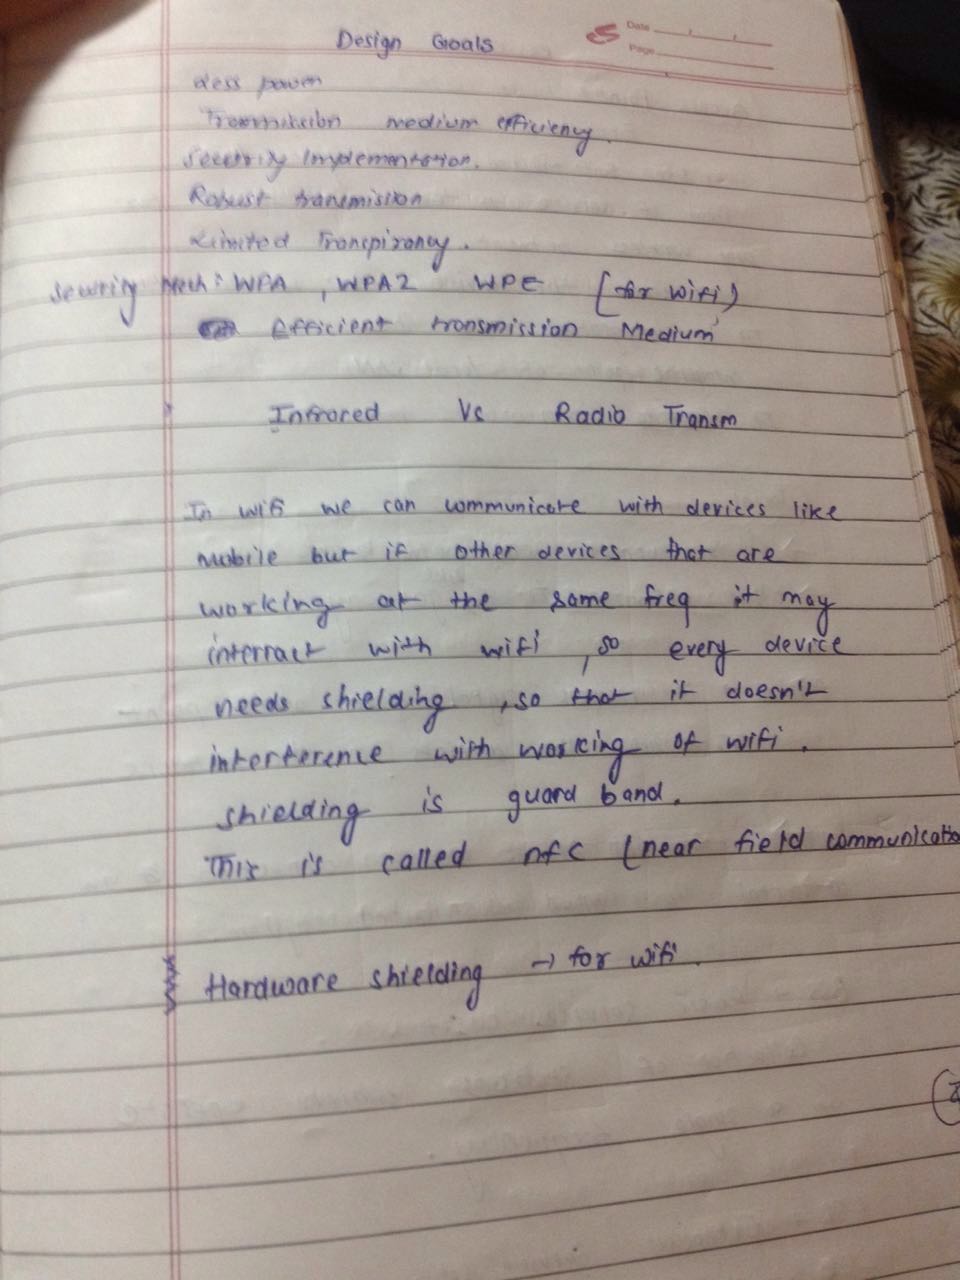 Design Goals
Date
Page
Less power
Transmission medium efficiency.
Security Implementation.
Robust transmission
Limited Transpirancy.
Security Mech: WPA, WPA2 WPE (for wifi)
Efficient transmission Medium
Infrared Vs Radio Transm
In wifi we can communicate with devices like
mobile but if other devices that are
working at the same freq it may
interract with wifi, so every device
needs shielding, so that it doesn't
interference with working of wifi.
shielding is guard band.
This is called nfc (near field communicatio
Hardware shielding → for wifi.